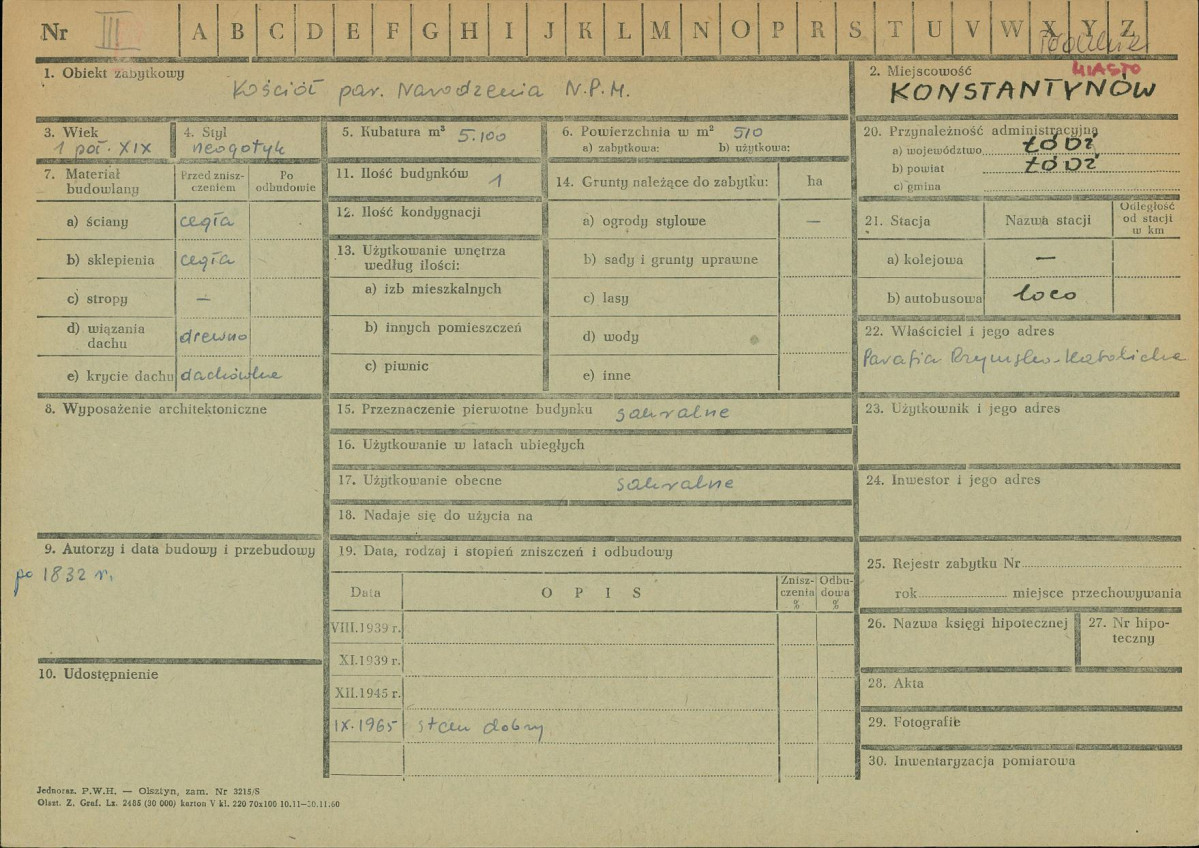 Nr III A B C D E F G H I J K L M N O P R S T U V W X Y Z
MIASTO
1. Obiekt zabytkowy
Kościół par. Narodzenia N.P.M.
2. Miejscowość
KONSTANTYNÓW
3. Wiek
1 poł. XIX
4. Styl
neogotyk
5. Kubatura m³ 5.100
6. Powierzchnia w m² 510
a) zabytkowa: b) użytkowa:
20. Przynależność administracyjna
a) województwo ŁÓDŹ
b) powiat ŁÓDŹ
c) gmina
7. Materiał budowlany
Przed zniszczeniem
Po odbudowie
a) ściany cegła
b) sklepienia cegła
c) stropy —
d) wiązania dachu drewno
e) krycie dachu dachówka
11. Ilość budynków 1
12. Ilość kondygnacji
13. Użytkowanie wnętrza
według ilości:
a) izb mieszkalnych
b) innych pomieszczeń
c) piwnic
14. Grunty należące do zabytku: ha
a) ogrody stylowe —
b) sady i grunty uprawne
c) lasy
d) wody
e) inne
21. Stacja Nazwa stacji
Odległość
od stacji
w km
a) kolejowa —
b) autobusowa loco
22. Właściciel i jego adres
Parafia Rzymsko-Katolicka
8. Wyposażenie architektoniczne
15. Przeznaczenie pierwotne budynku sakralne
16. Użytkowanie w latach ubiegłych
17. Użytkowanie obecne sakralne
18. Nadaje się do użycia na
23. Użytkownik i jego adres
24. Inwestor i jego adres
9. Autorzy i data budowy i przebudowy
po 1832 r.
10. Udostępnienie
19. Data, rodzaj i stopień zniszczeń i odbudowy
Data
O P I S
Zniszczenia %
Odbudowa %
VIII.1939 r.
XI.1939 r.
XII.1945 r.
IX.1965 stan dobry
25. Rejestr zabytku Nr
rok miejsce przechowywania
26. Nazwa księgi hipotecznej
27. Nr hipoteczny
28. Akta
29. Fotografie
30. Inwentaryzacja pomiarowa
Jednoraz. P.W.H. — Olsztyn, zam. Nr 3215/S
Olszt. Z. Graf. Lz. 2485 (30 000) karton V kl. 220 70x100 10.11—30.11.60